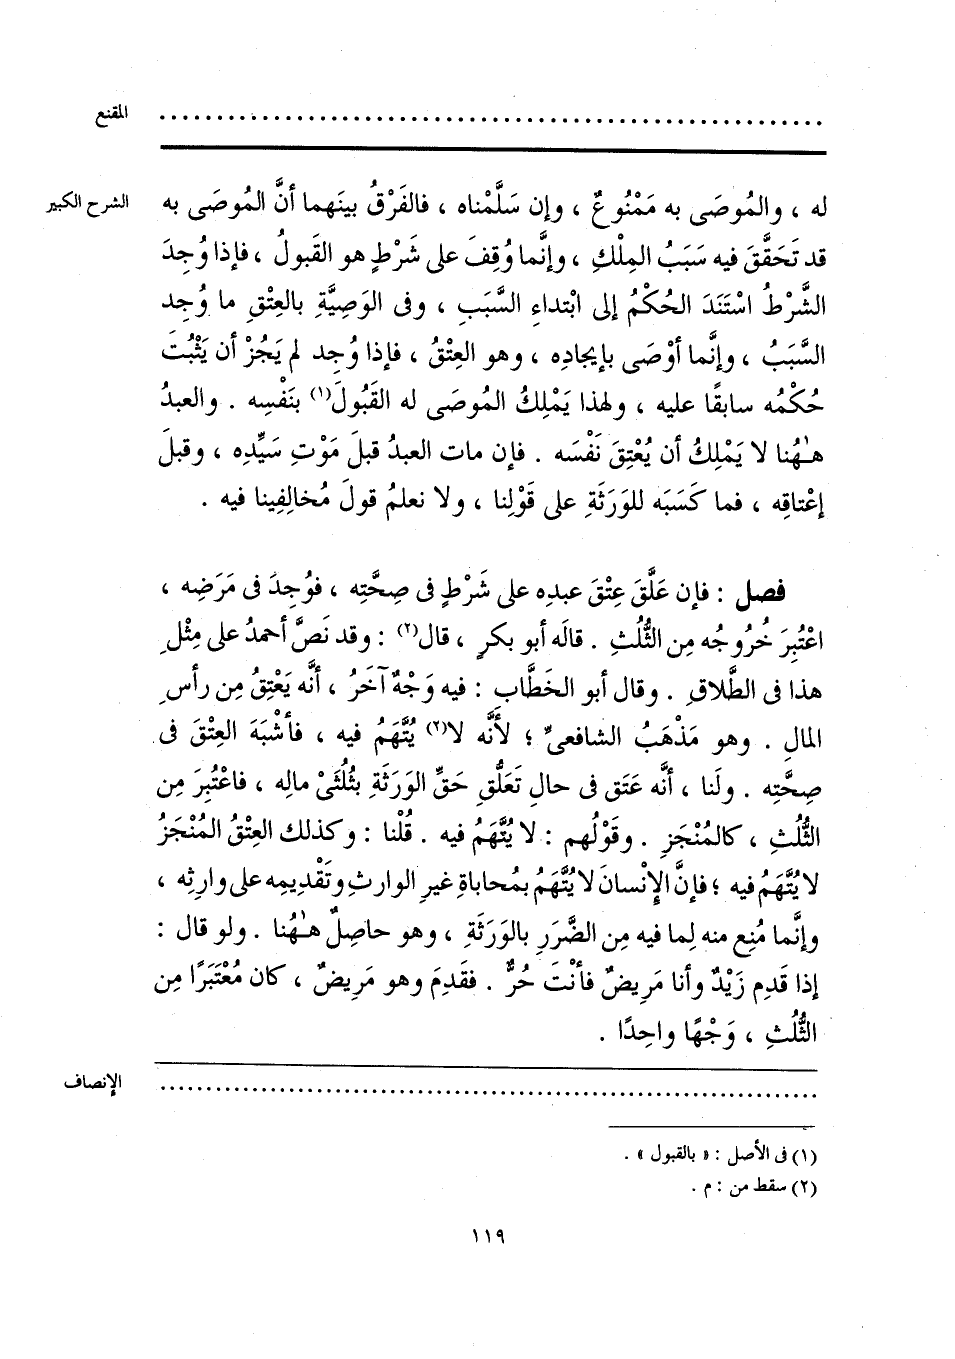 المقنع ..........................................................
الشرح الكبير
له ، والمُوصَى به مَمْنُوعٌ ، وإن سَلَّمْناه ، فالفَرْقُ بينَهما أنَّ المُوصَى به
قد تَحَقَّقَ فيه سَبَبُ المِلْكِ ، وإنَّما وُقِفَ على شَرْطٍ هو القَبولُ ، فإذا وُجِدَ
الشَّرْطُ اسْتَنَدَ الحُكْمُ إلى ابْتداءِ السَّبَبِ ، وفى الوَصِيَّةِ بالعِتْقِ ما وُجِد
السَّبَبُ ، وإنَّما أوْصَى بإيجادِه ، وهو العِتْقُ ، فإذا وُجِد لم يَجُزْ أن يَثْبُتَ
حُكْمُه سابقًا عليه ، ولهذا يَمْلِكُ المُوصَى له القَبُولَ(١) بنَفْسِه . والعبدُ
هـٰهُنا لا يَمْلِكُ أن يُعْتِقَ نَفْسَه . فإن مات العبدُ قبلَ مَوْتِ سَيِّدِه ، وقبلَ
إعْتاقِه ، فما كَسَبَه للوَرَثَةِ على قَوْلِنا ، ولا نعلمُ قولَ مُخالِفِينا فيه .
فصل : فإن عَلَّقَ عِتْقَ عبدِه على شَرْطٍ فى صِحَّتِه ، فوُجِدَ فى مَرَضِه ،
اعْتُبِرَ خُرُوجُه مِن الثُّلُثِ . قالَه أبو بكرٍ ، قال(٢) : وقد نَصَّ أحمدُ على مِثْلِ
هذا فى الطَّلاقِ . وقال أبو الخَطَّابِ : فيه وَجْهٌ آخَرُ ، أنَّه يَعْتِقُ مِن رأسِ
المالِ . وهو مَذْهَبُ الشافعىِّ ؛ لأنَّه لا(٢) يُتَّهَمُ فيه ، فأشْبَهَ العِتْقَ فى
صِحَّتِه . ولَنا ، أنَّه عَتَق فى حالِ تَعَلُّقِ حَقِّ الوَرَثَةِ بثُلُثَىْ مالِه ، فاعْتُبِرَ مِن
الثُّلُثِ ، كالمُنْجَزِ . وقَوْلُهم : لا يُتَّهَمُ فيه . قُلْنا : وكذلك العِتْقُ المُنْجَزُ
لا يُتَّهَمُ فيه ؛ فإنَّ الإِنْسانَ لا يُتَّهَمُ بمُحاباةِ غيرِ الوارثِ وتَقْدِيمِه على وارِثِه ،
وإنَّما مُنِع منه لِما فيه مِن الضَّرَرِ بالوَرَثَةِ ، وهو حاصِلٌ هـٰهُنا . ولو قال :
إذا قَدِم زَيْدٌ وأنا مَرِيضٌ فأنْتَ حُرٌّ . فقَدِمَ وهو مَرِيضٌ ، كان مُعْتَبَرًا مِن
الثُّلُثِ ، وَجْهًا واحِدًا .
الإنصاف ..........................................................
(١) فى الأصل : « بالقبول » .
(٢) سقط من : م .
١١٩